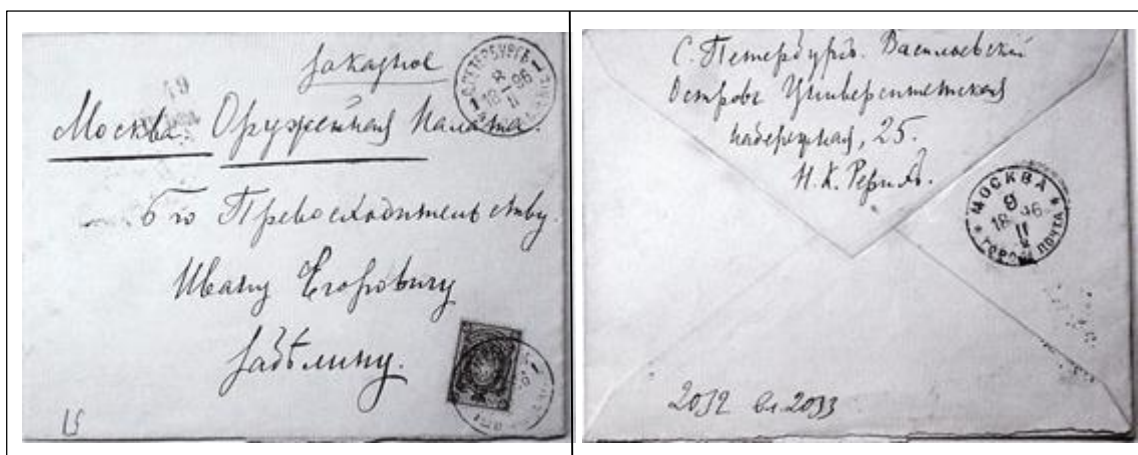 Заказное
С.ПЕТЕРБУРГЪ
1
8
18 96
II
Москва. Оружейная Палата.
Его Превосходительству.
Ивану Егоровичу
Забѣлину.
15
С. Петербургъ. Васильевскій
Островъ Университетская
набережная, 25.
Н. К. Рерихъ.
МОСКВА
9
18 96
II
ГОРОД. ПОЧТА
2032 вл. 2033